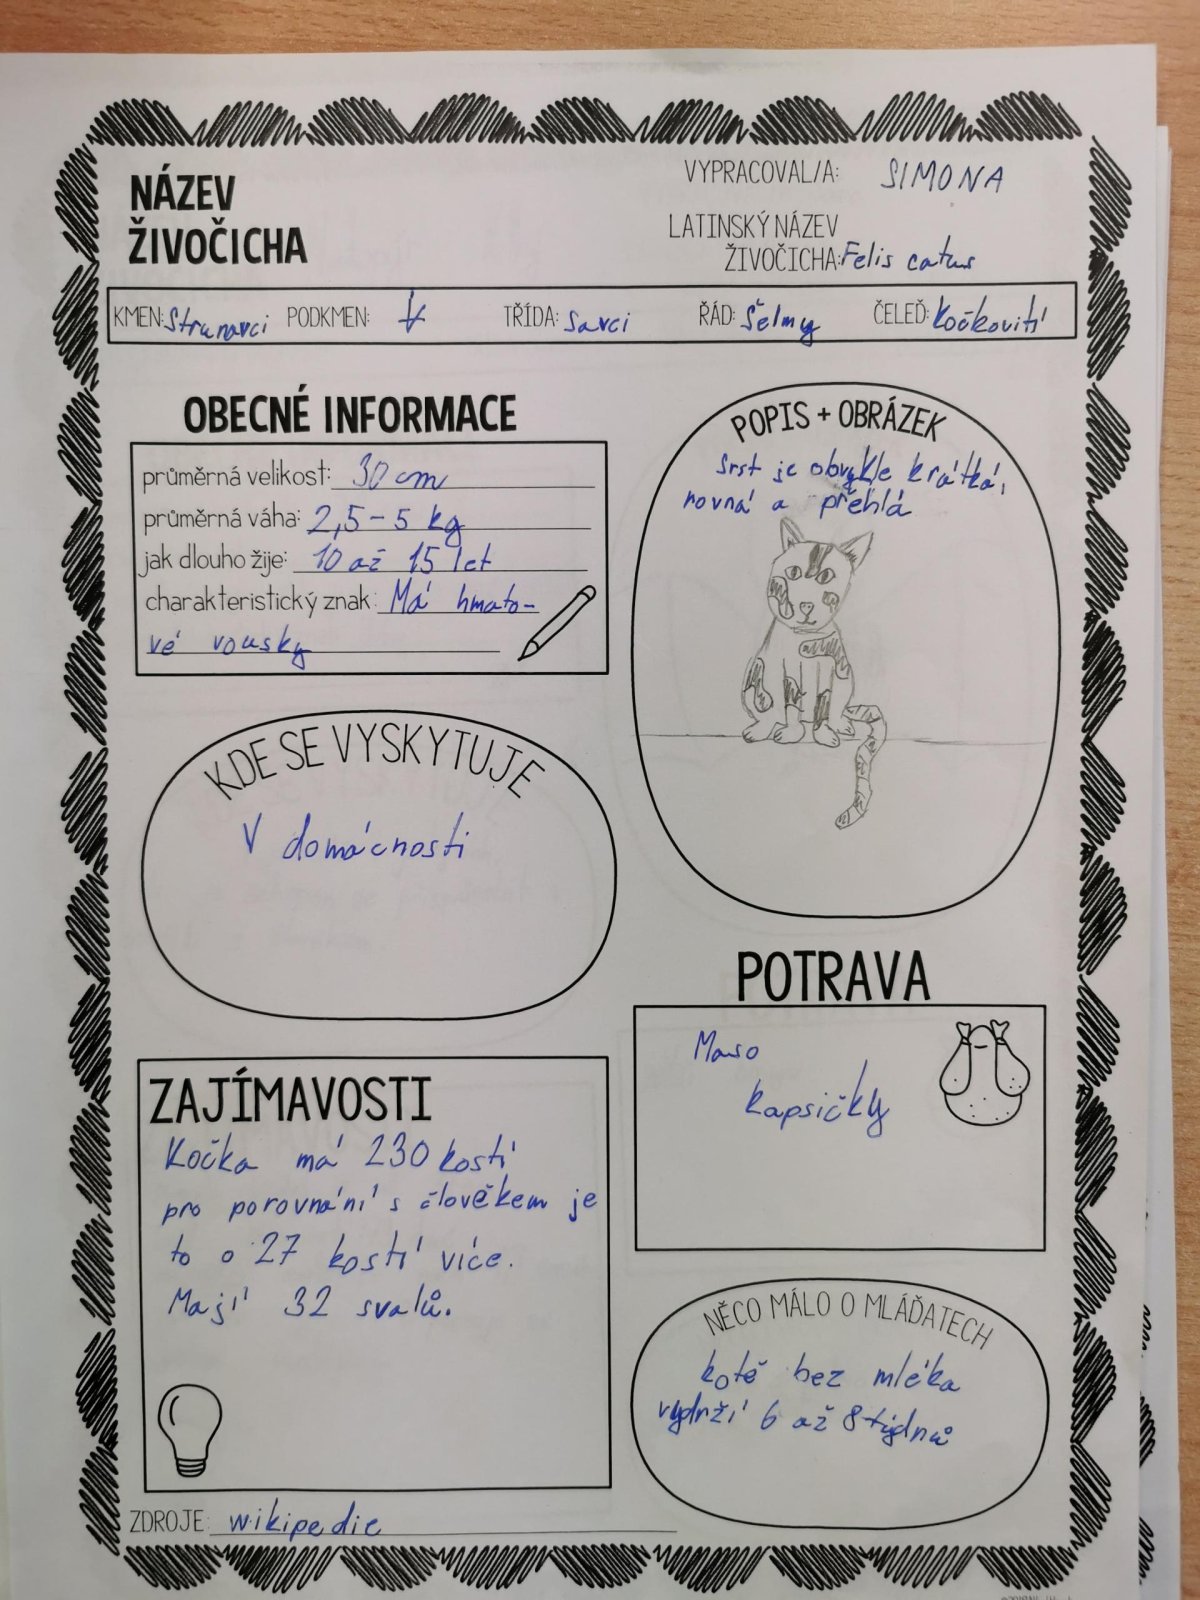 NÁZEV
ŽIVOČICHA
VYPRACOVAL/A: SIMONA
LATINSKÝ NÁZEV
ŽIVOČICHA: Felis catus
KMEN: Strunavci PODKMEN: TŘÍDA: savci ŘÁD: Šelmy ČELEĎ: Kočkovití
OBECNÉ INFORMACE
průměrná velikost: 30 cm
průměrná váha: 2,5-5 kg
jak dlouho žije: 10 až 15 let
charakteristický znak: Má hmato-
vé vousky
POPIS + OBRÁZEK
Srst je obvykle krátká,
rovná a přehlá
KDE SE VYSKYTUJE
V domácnosti
POTRAVA
Maso
kapsičky
ZAJÍMAVOSTI
Kočka má 230 kostí
pro porovnání s člověkem je
to o 27 kostí více.
Mají 32 svalů.
NĚCO MÁLO O MLÁĎATECH
kotě bez mléka
vydrží 6 až 8 týdnů
ZDROJE: wikipedie